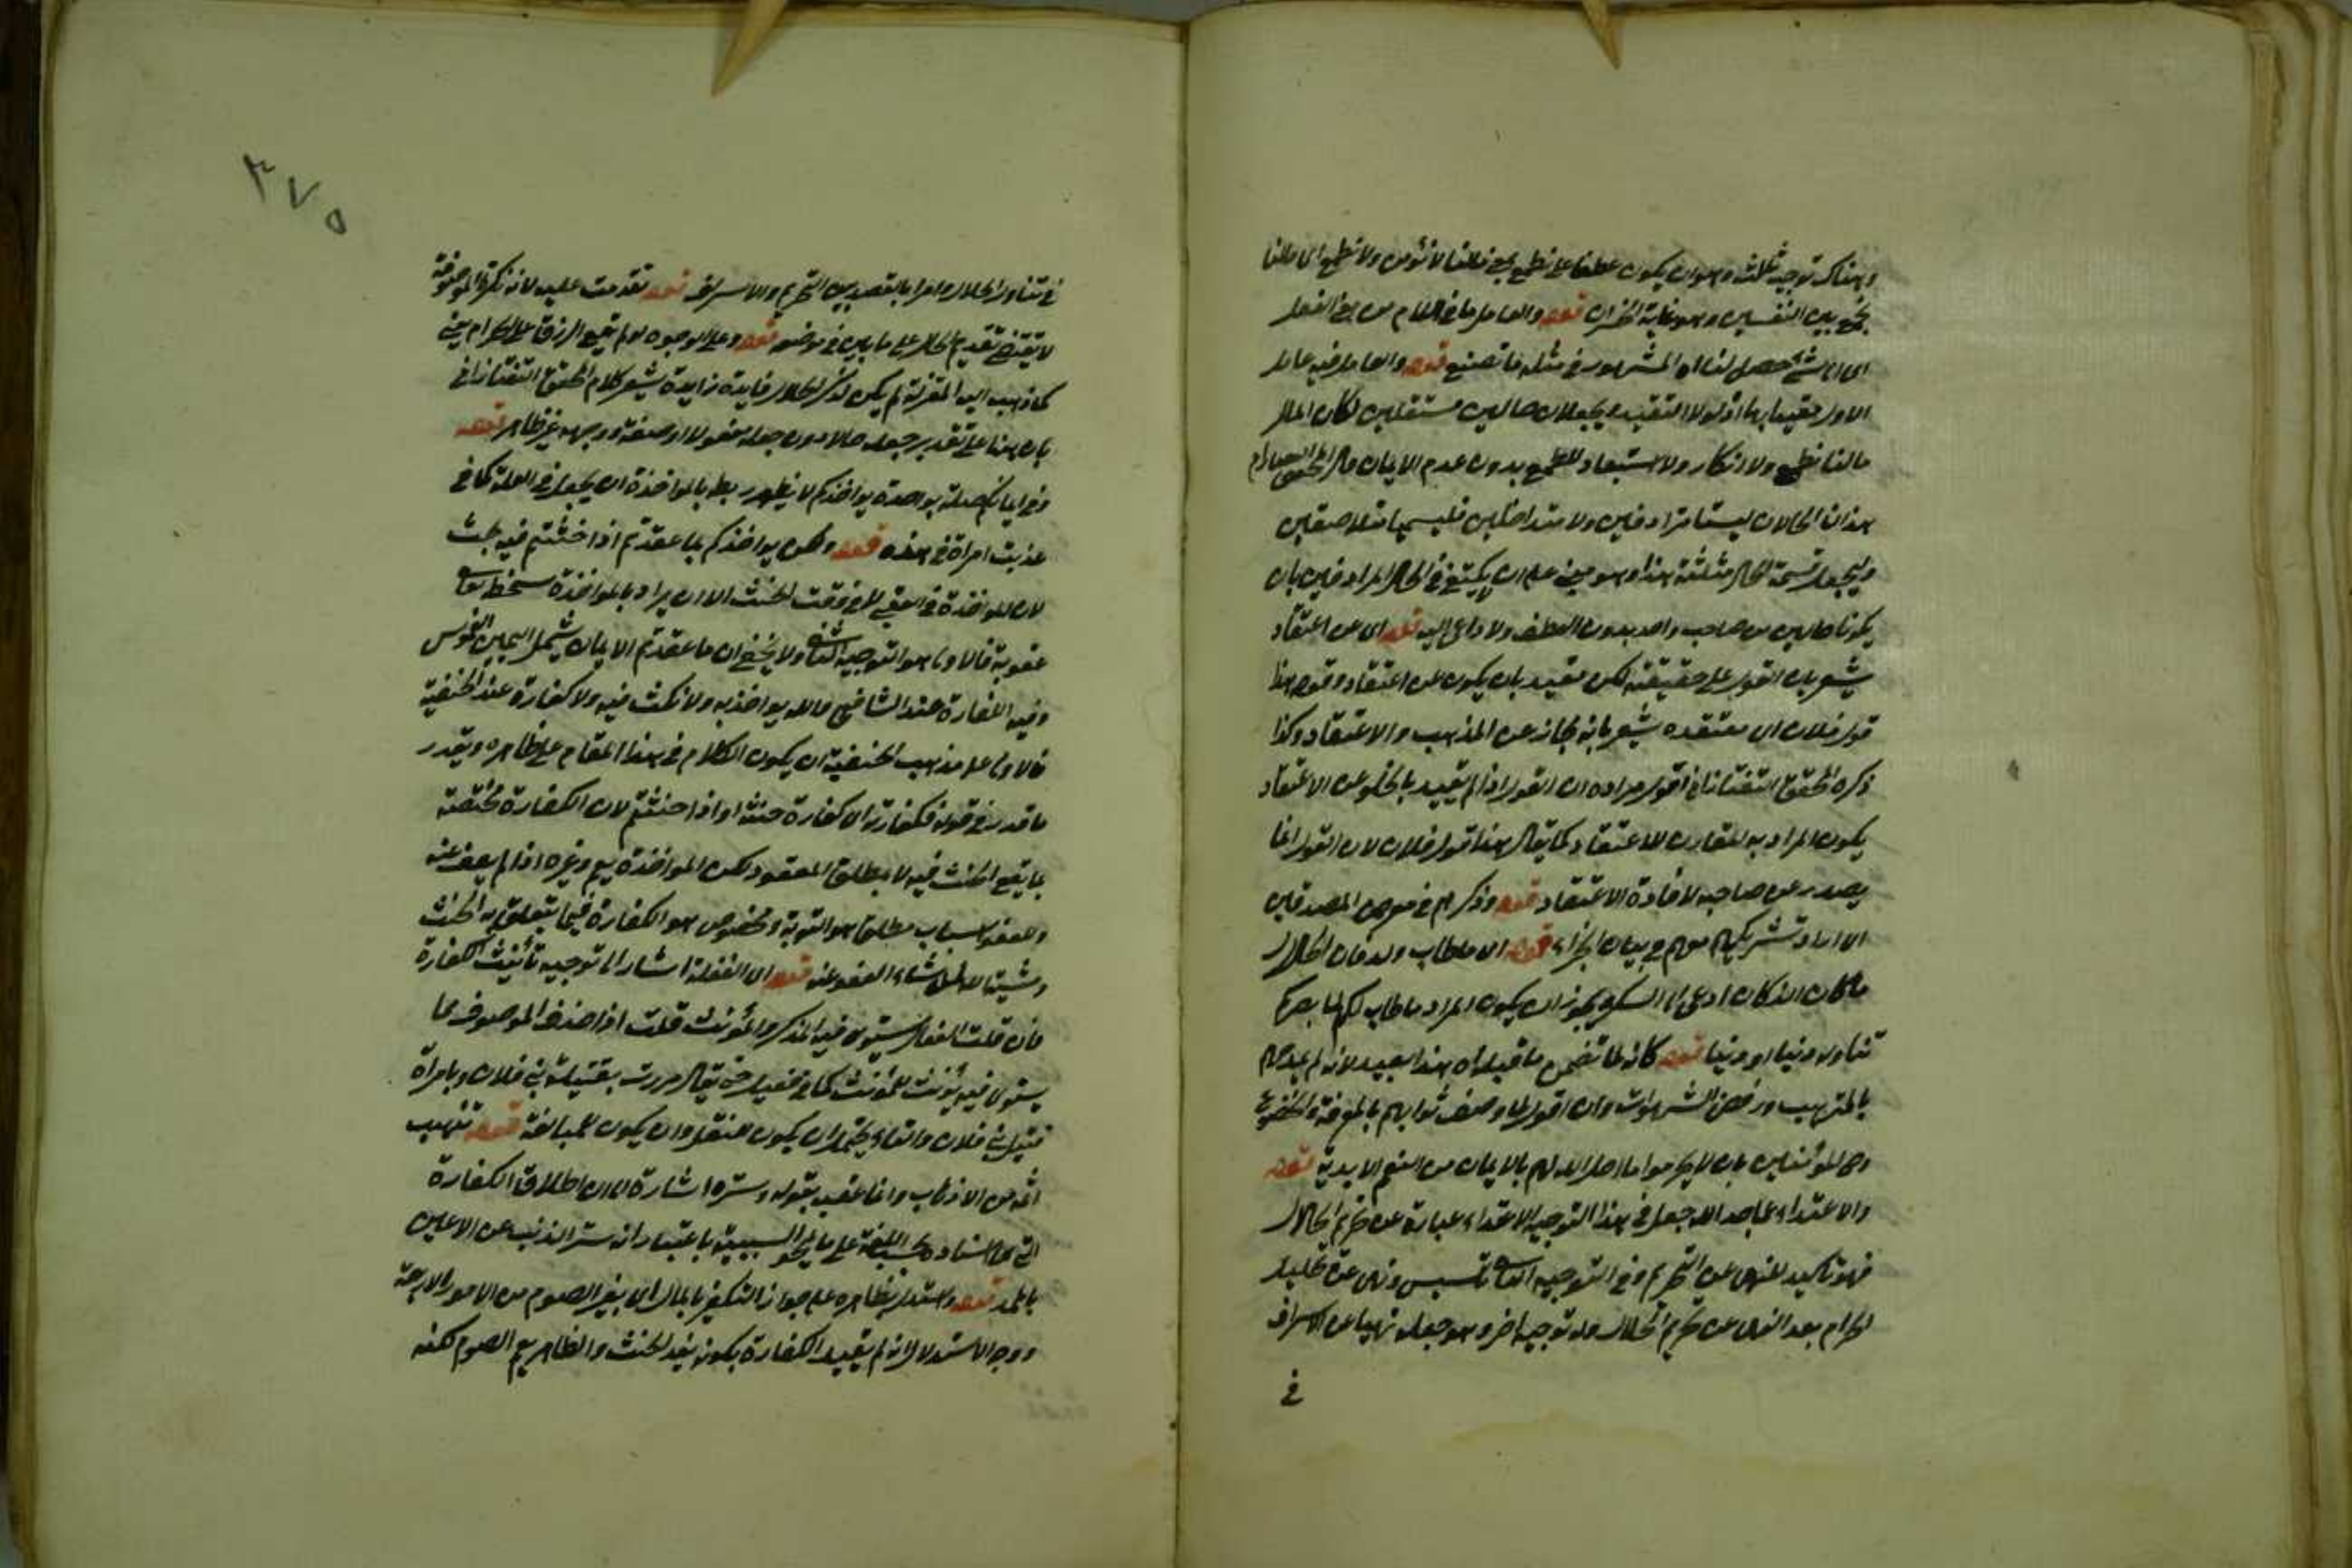 وهناك توجيه ثالث وهو ان يكون عطفا على نطمع يعني مالنا لا نؤمن ولا نطمع اي مالنا
نجمع بين النفيين وهو غاية الخسران قوله والعامل ما في اللام من معنى الفعل
اي اي شئ حصل لنا اه المشهور في مثله ما تصنع قوله والعامل فيه عامل
الاول مقيدا بها اذ لولا التقييد ويجعلان حالين مستقلين لكان المآل
مالنا نطمع ولا انكار ولا استبعاد للطمع بدون عدم الايمان قال المحقق
هذان الحالان ليستا مترادفين ولا متداخلين فليسميا متلاصقين
وليجعل قسمة الحال مثلثة هذا وهو مبني على ان يكتفي في الحال المرادفين بان
يكونا حالين من صاحب واحد بدون العطف ولا داعي اليه قوله اي عن اعتقاد
يشعر بان القول على حقيقته لكن مقيد بان يكون عن اعتقاد وقوله هذا
قول فلان اي معتقده يشعر بانه مجاز عن المذهب والاعتقاد وكذا
ذكره المحقق التفتازاني اقول مراده ان القول اذا لم يقيد بالخلو عن الاعتقاد
يكون المراد به المقارن للاعتقاد كما يقال هذا قول فلان لان القول انما
يصدر عن صاحبه لافادة الاعتقاد قوله وذكرهم في معرض المصدقين
اي اراد تشريكهم معهم في بيان الجزاء قوله اي ما طاب ولذ فان الحلال
ما كان الذ كان ادعى الى الشكر ويجوز ان يكون المراد ما طاب لكم
تناوله دنيا او دينا قوله كانه لما تضمن ما قبله اه هذا بعيد لانه لم يمدحهم
بالترهب ورفض الشهوات وان اقول لما وصف ثوابهم بالمعرفة والخضوع
المؤمنين بان لا يحرموا ما احل الله لهم بالايمان من النعم الابدية قوله
والاعتداء عما حد الله جعل في هذا التوجيه الاعتداء عبارة عن تحريم الحلال
فهو تأكيد للنهي عن التحريم وفي التوجيه الثاني تأسيس ونهي عن تحليل
الحرام بعد النهي عن تحريم الحلال وله توجيه اخر وهو جعله نهيا عن الاسراف
في
٣٧٥
في تناول الحلال وامرا بالقصد بين التحريم والاسراف قوله تقدمت عليه لانه نكرة الموصوفة
لا يقتضي تقديم الحال على ما بين في موضعه قوله وعلى الوجوه لو لم يقع الرزق على الحرام يعني
كما ذهب اليه المعتزلة لم يكن لذكر الحلال فايدة زايدة يشعر كلام المحقق التفتازاني
بان هذا على تقدير جعله حالا دون جعله مفعولا او صفة ووجهه غير ظاهر قوله
وفي ايمانكم صلة يواخذكم لا يظهر ربط بالمواخذة الا ان يجعل في للعلة كما في
عذبت امراة في هرة قوله ولكن يواخذكم بما عقدتم اذا حنثتم فيه بحث
لان المواخذة في العقبى لا في وقت الحنث الا ان يراد بالمواخذة
عقوبة فالاولى هو التوجيه الثاني ولا يخفى ان ما عقدتم الايمان يشمل اليمين الغموس
وفيه الكفارة عند الشافعي مما لله يواخذ به ولا نكث فيه ولا كفارة عند الحنفية
فالاولى على مذهب الحنفية ان يكون الكلام في هذا المقام على ظاهره ويقدر
ما قدر في قوله فكفارته اي كفارة حنثه او اذا حنثتم لان الكفارة مختصة
بما يقع الحنث فيه لا بمطلق المعقود لكن المواخذة يعم وغيره اذا لم يعف عنه
وللعفو اسباب مطلق هو التوبة ومخصوص هو الكفارة فيما يتعلق به الحنث
ومشيته لاهل شاء العفو عنه قوله اي الفعلة اشار الى توجيه تأنيث الكفارة
فان قلت الفعال يستوي فيه المذكر والمؤنث قلت اذا حذف الموصوف مما
يستوي فيه يؤنث للمؤنث كما في فعيل حتى يقال مررت بقتيلة بني فلان وبامراة
قتيل بني فلان والتاء يحتمل ان يكون للنقل وان يكون للمبالغة قوله تذهب
اثمه من الاذهاب وانما عقبه بقوله وستره اشارة الى ان اطلاق الكفارة
التي هي الستارة بحسب اللغة على ما يمحو السيئة باعتبار انه ستر الذنب عن الاعين
بالمد قوله واستدل بظاهره على جواز التكفير بالمال اي بغير الصوم من الامور الاربعة
ووجه الاستدلال انه لم يقيد الكفارة بكونه بعد الحنث والظاهر يعم الصوم لكنه